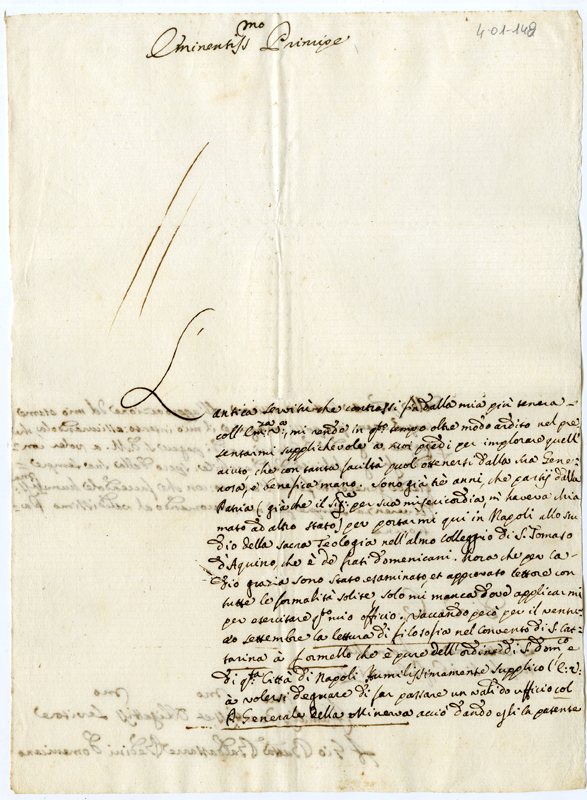 4-01-148
Eminentiss.mo Principe
L'antica servitù che contrassi fin dalla mia più tenera
coll'Em.za V.a, mi rende in q.to tempo oltre modo ardito nel pre
sentarmi supplichevole a suoi piedi per implorare quell'
aiuto, che con tanta facilità puol ottenersi dalla sua Gene
rosa, e benefica mano. Sono già tre anni, che partij dalla
Patria (già che il Sig.re per sua misericordia, m'haveva chia
mato ad altro stato) per portarmi qui in Napoli allo stu
dio della Sacra Teologia nell'almo colleggio di S. Tomaso
d'Aquino, che è de frati domenicani. Hora che per la
Dio grazia sono stato esaminato, et approvato lettore con
tutte le formalità solite solo mi manca dove applicarmi
per esercitare q.to mio officio. Vaccando però per il venti
do settembre la lettura di filosofia nel convento di S. Cat-
tarina à formello che è pure dell'ordine di S. Dom.co
di q.ta Città di Napoli humilissimamente supplico l'E.V.
à volersi degnare di far passare un valido ufficio col
P. Generale della Minerva acciò dando egli la patente